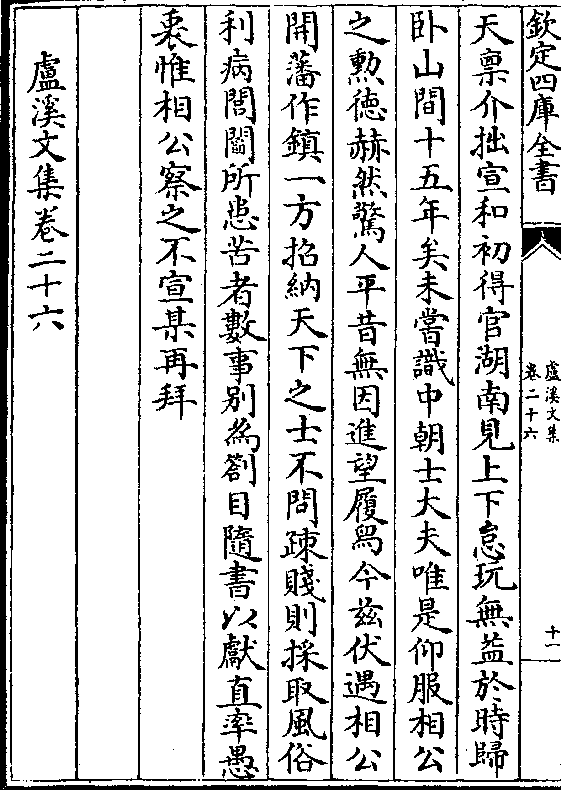 欽定四庫全書
盧溪文集
卷二十六
十一
天禀介拙宣和初得官湖南見上下怠玩無益於時歸
卧山間十五年矣未嘗識中朝士大夫唯是仰服相公
之勲徳赫然驚人平昔無因進望履舄今兹伏遇相公
開藩作鎮一方招納天下之士不問疎賤則採取風俗
利病閭閻所患苦者數事别為劄目隨書以獻直率愚
衷惟相公察之不宣某再拜
盧溪文集卷二十六